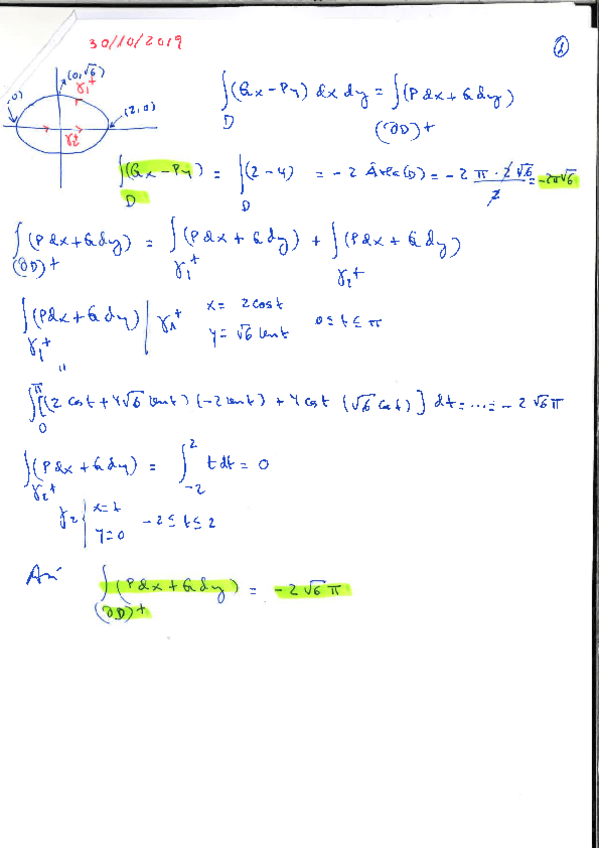 30/10/2019
1
(0,√6)
γ1+
0)
(2,0)
γ2
∫D (Qx - Py) dx dy = ∫(∂D)+ (P dx + Q dy)
∫D (Qx - Py) = ∫D (2 - 4) = -2 Área(D) = -2 π · 2√6 / 2 = -2π√6
∫(∂D)+ (P dx + Q dy) = ∫γ1+ (P dx + Q dy) + ∫γ2+ (P dx + Q dy)
∫γ1+ (P dx + Q dy) | γ1+ x = 2 cos t
y = √6 sen t 0 ≤ t ≤ π
"
∫0π [(2 cos t + 4√6 sen t) (-2 sen t) + 4 cos t (√6 cos t)] dt = ... = -2√6 π
∫γ2+ (P dx + Q dy) = ∫-2 2 t dt = 0
γ2 | x = t
y = 0 -2 ≤ t ≤ 2
Así ∫(∂D)+ (P dx + Q dy) = -2√6 π